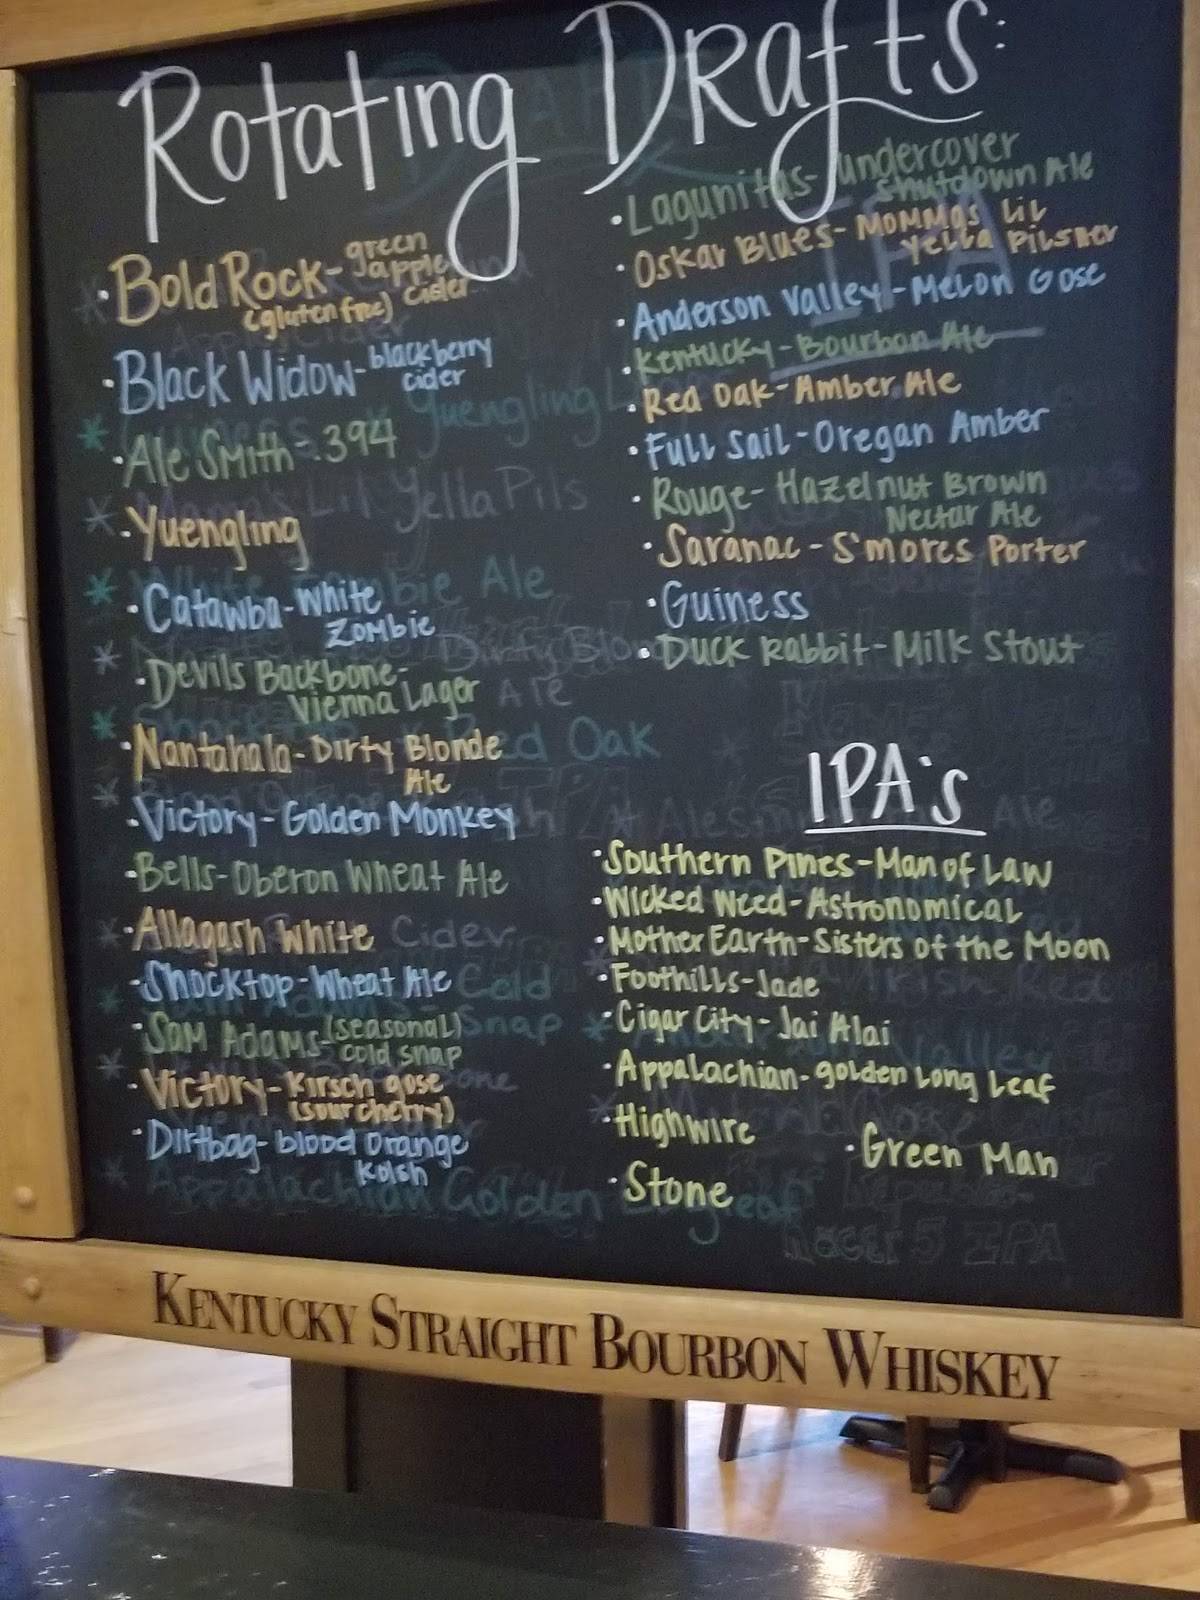 Rotating Drafts:
Bold Rock- green
apple
(gluten free) cider
Black Widow- blackberry
cider
Ale Smith - .394
Yuengling
Catawba - White
Zombie
Devils Backbone -
Vienna Lager
Nantahala - Dirty Blonde
Ale
Victory - Golden Monkey
Bells - Oberon Wheat Ale
Allagash White
Shocktop - Wheat Ale
Sam Adams - (seasonal)
cold snap
Victory - Kirsch gose
(sour cherry)
Dirtbag - blood orange
Kolsh
Lagunitas - undercover
shutdown Ale
Oskar Blues - Mommas Lil
yella Pilsner
Anderson Valley - Melon Gose
Kentucky - Bourbon Ale
Red Oak - Amber Ale
Full Sail - Oregan Amber
Rouge - Hazelnut Brown
Nectar Ale
Saranac - S'mores Porter
Guiness
Duck Rabbit - Milk Stout
IPA's
Southern Pines - Man of Law
Wicked Weed - Astronomical
Mother Earth - Sisters of the Moon
Foothills - Jade
Cigar City - Jai Alai
Appalachian - golden Long Leaf
Highwire
Green Man
Stone
KENTUCKY STRAIGHT BOURBON WHISKEY